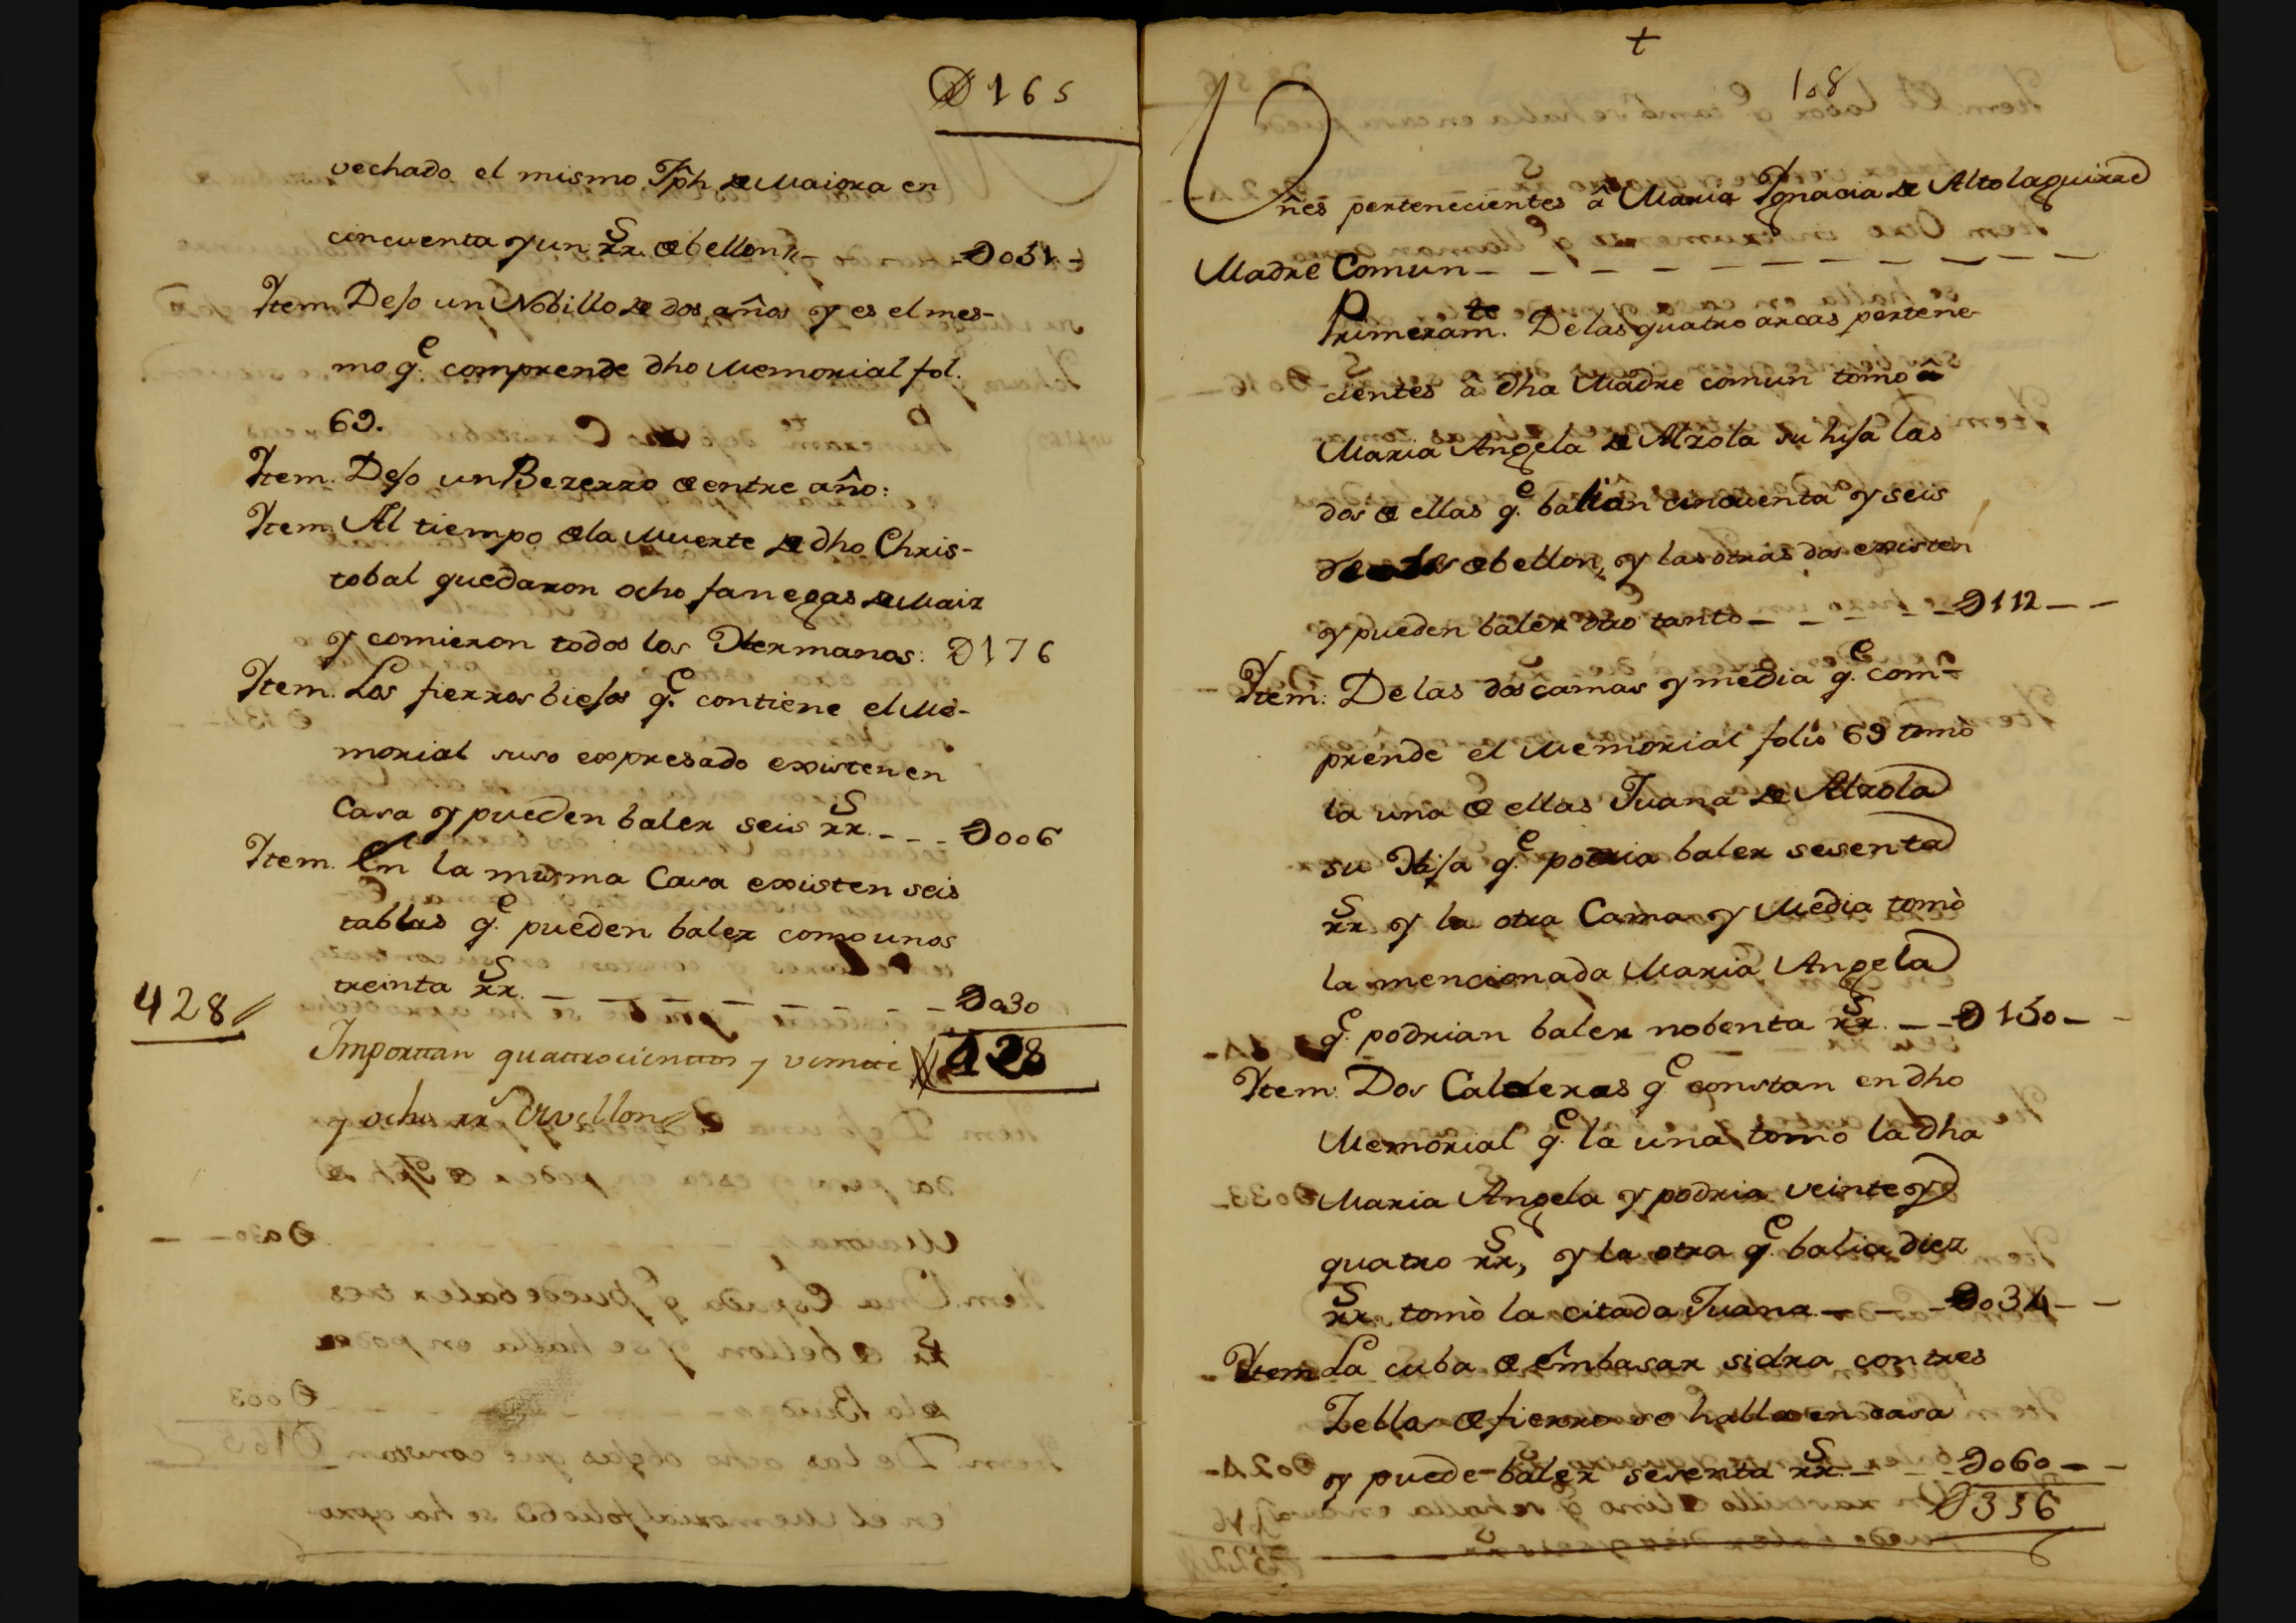 D165
vechado el mismo Jph de Maiora en
cincuenta y un rrs de bellon - D051 -
Item. Dejo un Nobillo de dos años y es el mes-
mo qe comprende dho Memorial fol.
69.
Item. Dejo un Bezerro de entre año:
Item. Al tiempo de la Muerte de dho Chris-
tobal quedaron ocho fanegas de Maiz
y comieron todos los Hermanos: D176
Item. Los fierros biejos qe contiene el Me-
morial suso expresado existen en
Casa y pueden baler seis rrs. - - - D006
Item. En la misma Casa existen seis
tablas qe pueden baler como unos
treinta rrs. - - - - - - - D030
428//
Importan quattrocienttos y veintte D428
y ocho rrs de vellon//
+
108
Vnes pertenecientes â Maria Ignacia de Altolaguirre
Madre Comun - - - - - - - - - - -
Primeramte. De las quatro arcas pertene-
cientes â dha Madre comun tomo â
Maria Angela de Alzola su hija las
dos de ellas qe balian cincuenta y seis
reales de bellon, y las otras dos existen
y pueden baler otro tanto - - - - - D112 - -
Item: De las dos camas y media qe com-
prende el Memorial folio 69 tomò
la una de ellas Juana de Alzola
su Hija qe podria baler sesenta
rrs y la otra Cama y Media tomò
la mencionada Maria Angela
qe podrian baler nobenta rrs. - - D150 - -
Item: Dos Calderas qe constan en dho
Memorial qe la una tomo la dha
Maria Angela y podria veinte y
quatro rrs, y la otra qe balia diez
rrs tomò la citada Juana - - - D034 - -
Item La cuba de embasar sidra con tres
Zellos de fierro se halla en casa
y puede baler sesenta rrs. - - - D060 - -
D356